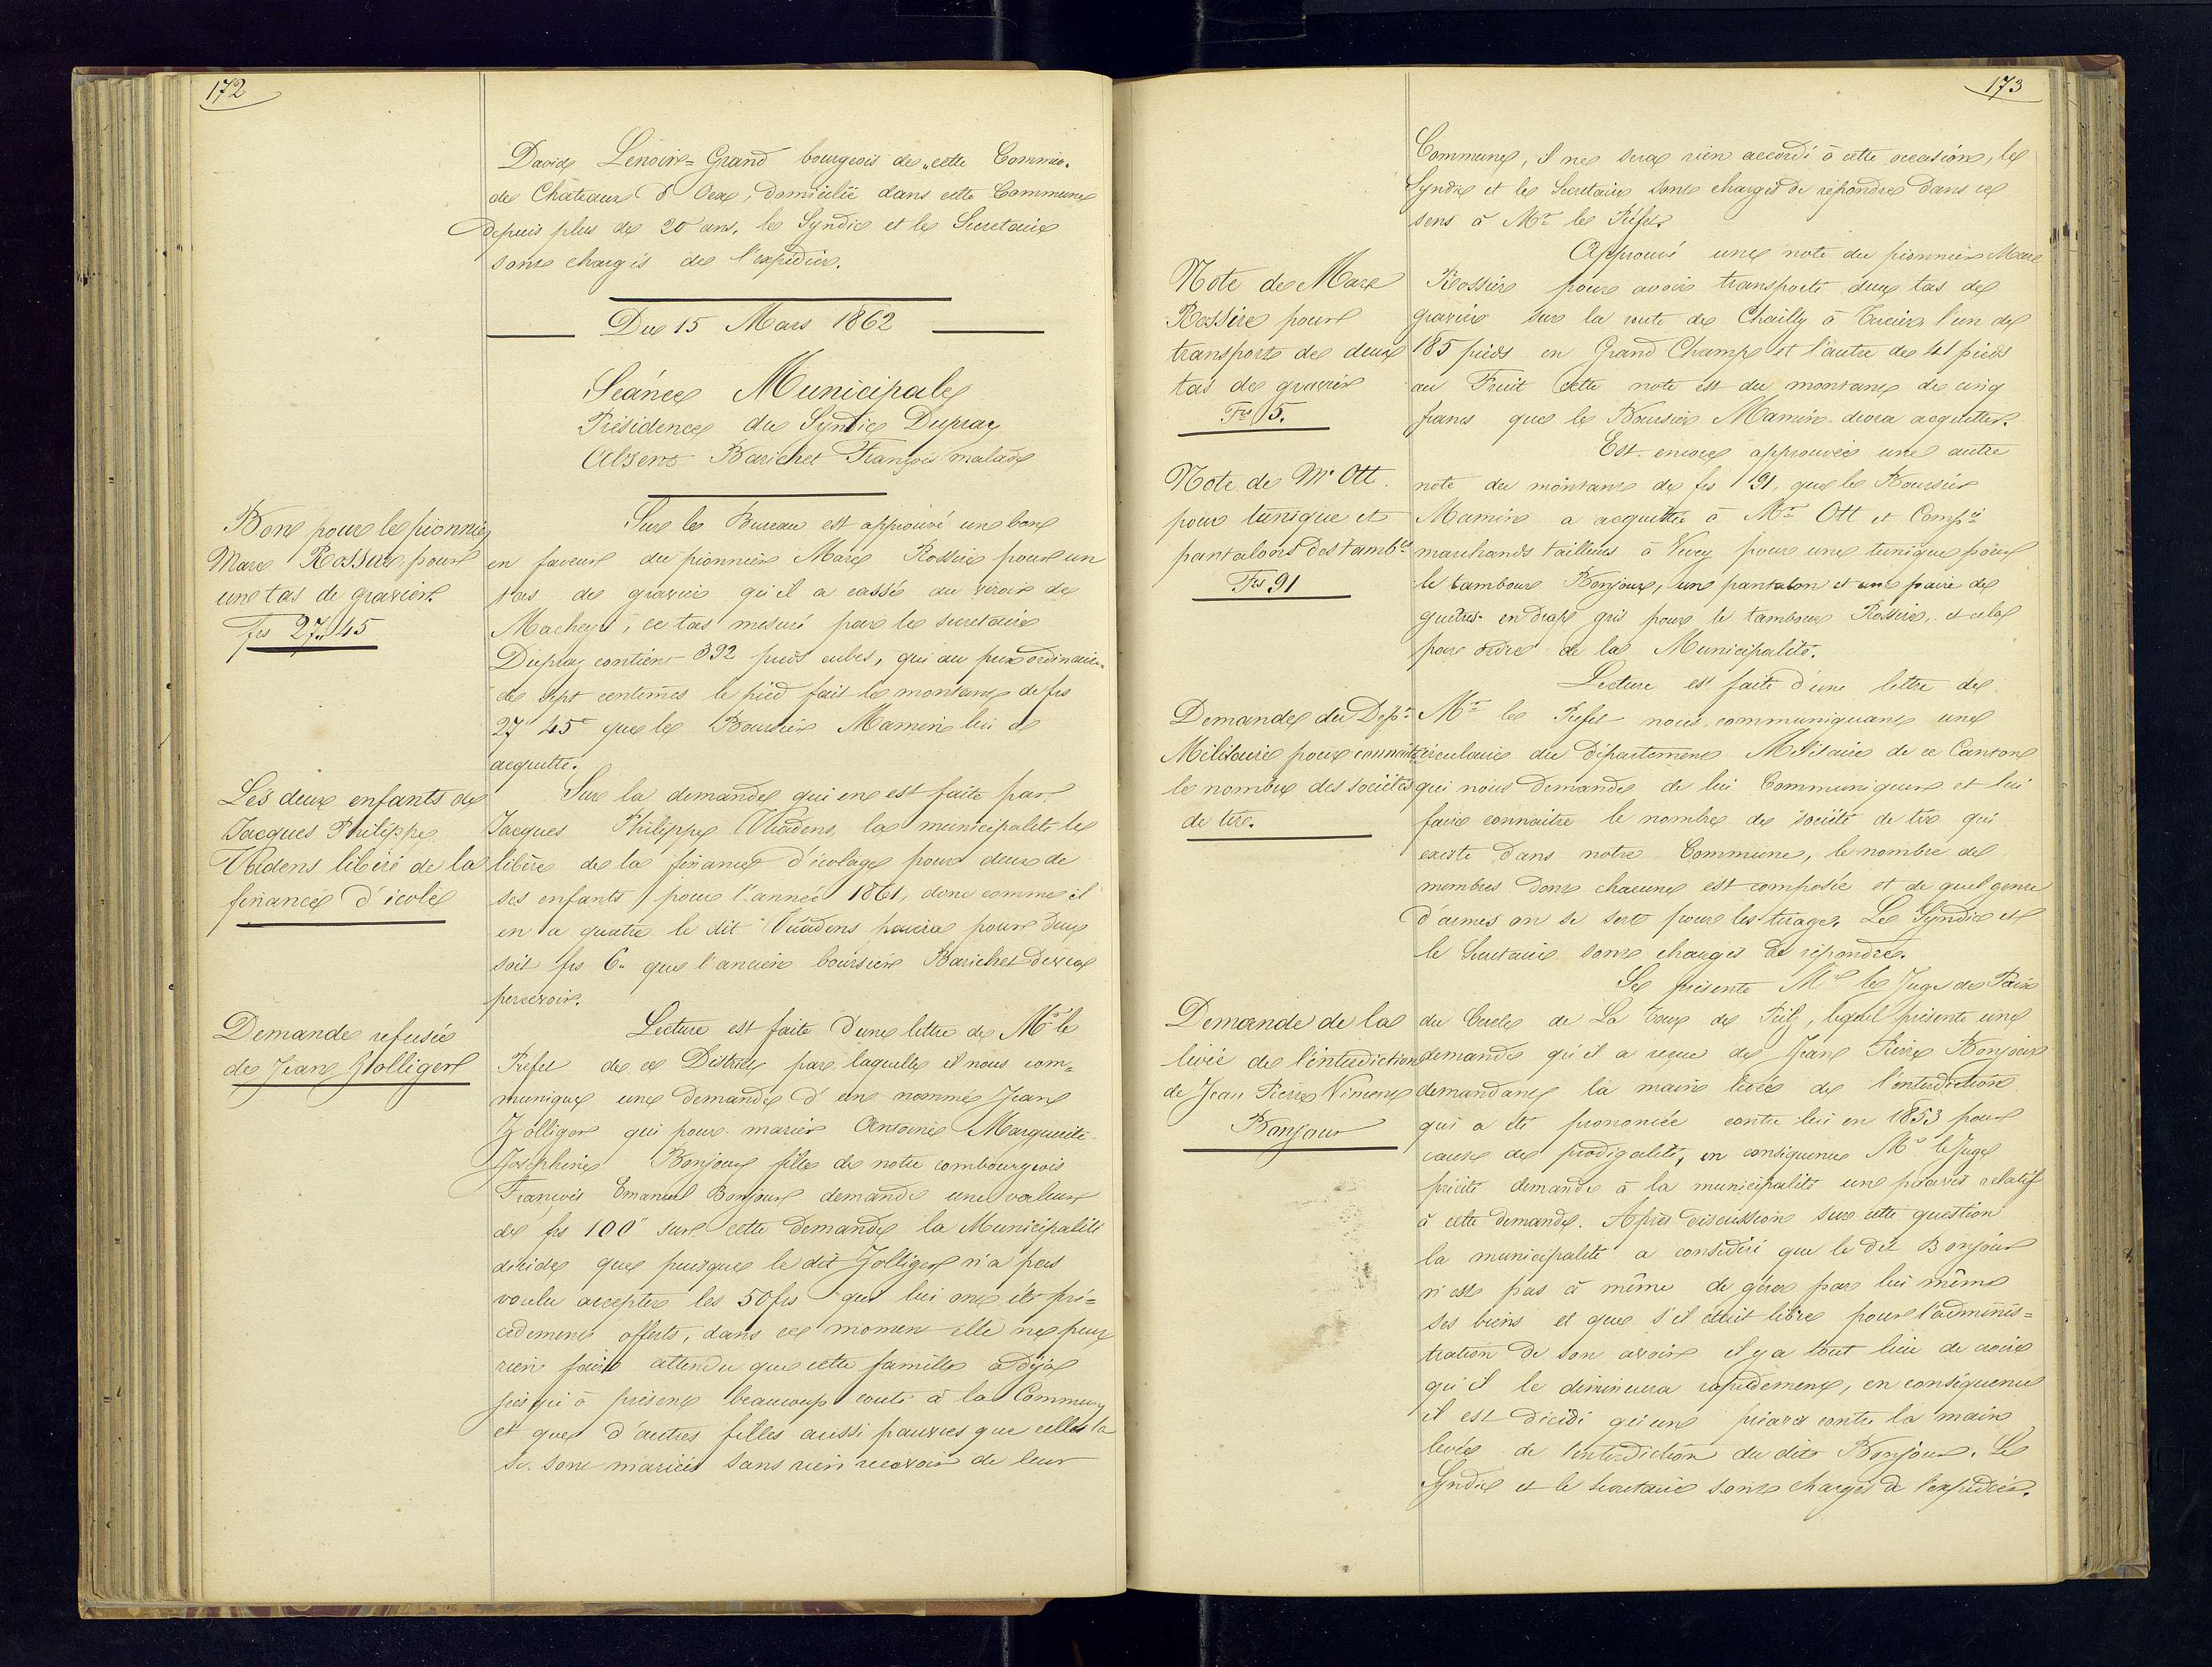 172
David Lenoir=Grand bourgeois de "cette Commne.
de Château d'Oex, domicilié dans cette Commune
depuis plus de 20 ans, le Syndic et le Secretaire
sont chargés de l'expédier.
Du 15 Mars 1862
Séance Municipale
Présidence du Syndic Dupraz
Absent Barichet François malade
Bon pour le pionnier
Marc Rossier pour
un tas de gravier.
frs 27.45
Sur le Bureau est approuvé un bon
en faveur du pionnier Marc Rossier pour un
tas de gravier qu'il a cassé au viroir de
Macheyre, ce tas mesuré par le secretaire
Dupraz contient 392 pieds cubes, qui au prix ordinaire
de sept centimes le pied fait le montant de frs
27" 45c que le Boursier Mamin lui a
acquitté.
Les deux enfants de
Jacques Philippe
Vuadens libéré de la
finance d'école
Sur la demande qui en est faite par
Jacques Philippe Vuadens, la municipalité le
libère de la finance d'écolage pour deux de
ses enfants pour l'année 1861, donc comme il
en a quatre le dit Vuadens paiera pour deux
soit frs 6" que l'ancien boursier Barichet devra
percevoir.
Demande refusée
de Jean Zolliger
Lecture est faite d'une lettre de Mr le
Préfet de ce District par laquelle il nous com=
munique une demande d'un nommé Jean
Zolliger qui pour marier Antoinie Marguerite
Joséphine Bonjour fille de notre combourgeois
François Emanuel Bonjour demande une valeur
de frs 100" sur cette demande la Municipalité
décide que puisque le dit Zolliger n'a pas
voulu accepter les 50 frs qui lui ont été pré=
cedement offerts, dans ce moment elle ne peut
rien faire attendu que cette famille a déjà
jusqu'à présent beaucoup couté à la Commune
et que d'autres filles aussi pauvres que celles la
se sont mariées sans rien recevoir de leur
173
Commune, il ne sera rien accordé à cette occasion, le
Syndic et le Secretaire sont chargés de répondre dans ce
sens à Mr le Préfet
Note de Marc
Rossier pour
transport de deux
tas de gravier
Frs 5.
Approuvé une note du pionnier Marc
Rossier pour avoir transporté deux tas de
gravier sur la route de Chailly à l'un de
185 pieds en Grand Champ et l'autre de 141 pieds
au Fruit cette note est du montant de cinq
francs que le Boursier Mamin devra acquitter.
Note de Mr Ott
pour tunique et
pantalons des tambrs
Frs 91
Est encore approuvée une autre
note du montant de frs 91 que le Boursier
Mamin a acquittée à Mr Ott et Compie
marchands tailleurs à Vevey pour une tunique pour
le tambour Bonjour, un pantalon et une paire de
guêtres en drap gris pour le tambour Rossier, et cela
par ordre de la Municipalité.
Demande du Dépt
Militaire pour connaître
le nombre des sociétés
de tir.
Lecture est faite d'une lettre de
Mr le Préfet nous communiquant une
circulaire du Département Militaire de ce Canton
qui nous demande de lui Communiquer et lui
faire connaitre le nombre de société de tir qui
existe dans notre Commune, le nombre de
membres dont chacune est composée et de quel genre
d'armes on se sert pour les tirage. Le Syndic et
le Secretaire sont charges de répondre.
Demande de la
livée de l'interdiction
de Jean Pierre Vincent
Bonjour
Se présente Mr le Juge de Paix
du Cercle de La Tour de Peilz, lequel présente une
demande qu'il a reçue de Jean Pierre Bonjour
demandant la main levée de l'interdiction
qui a été prononcée contre lui en 1853 pour
cause de prodigalité, en conséquence Mr le Juge
précité demande à la municipalité une préavis relatif
à cette demande. Après discussion sur cette question
la municipalité a considéré que le dit Bonjour
n'est pas à même de gérer par lui même
ses biens et que s'il était libre pour l'adminis=
tration de son avoir il y a tout lieu de croire
qu'il le diminuera rapidement, en conséquence
il est décidé qu'un préavis contre la main
levée de l'interdiction du dit Bonjour. Le
Syndic et le secretaire sont chargés de l'expédier.